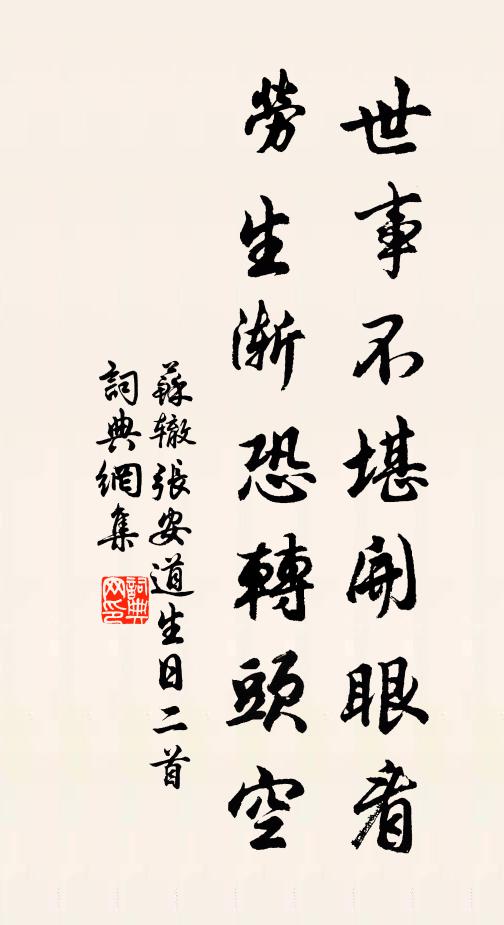 世事不堪開眼看
勞生漸恐轉頭空
蘇轍張安道生日二首
詞典網集
詞典網印